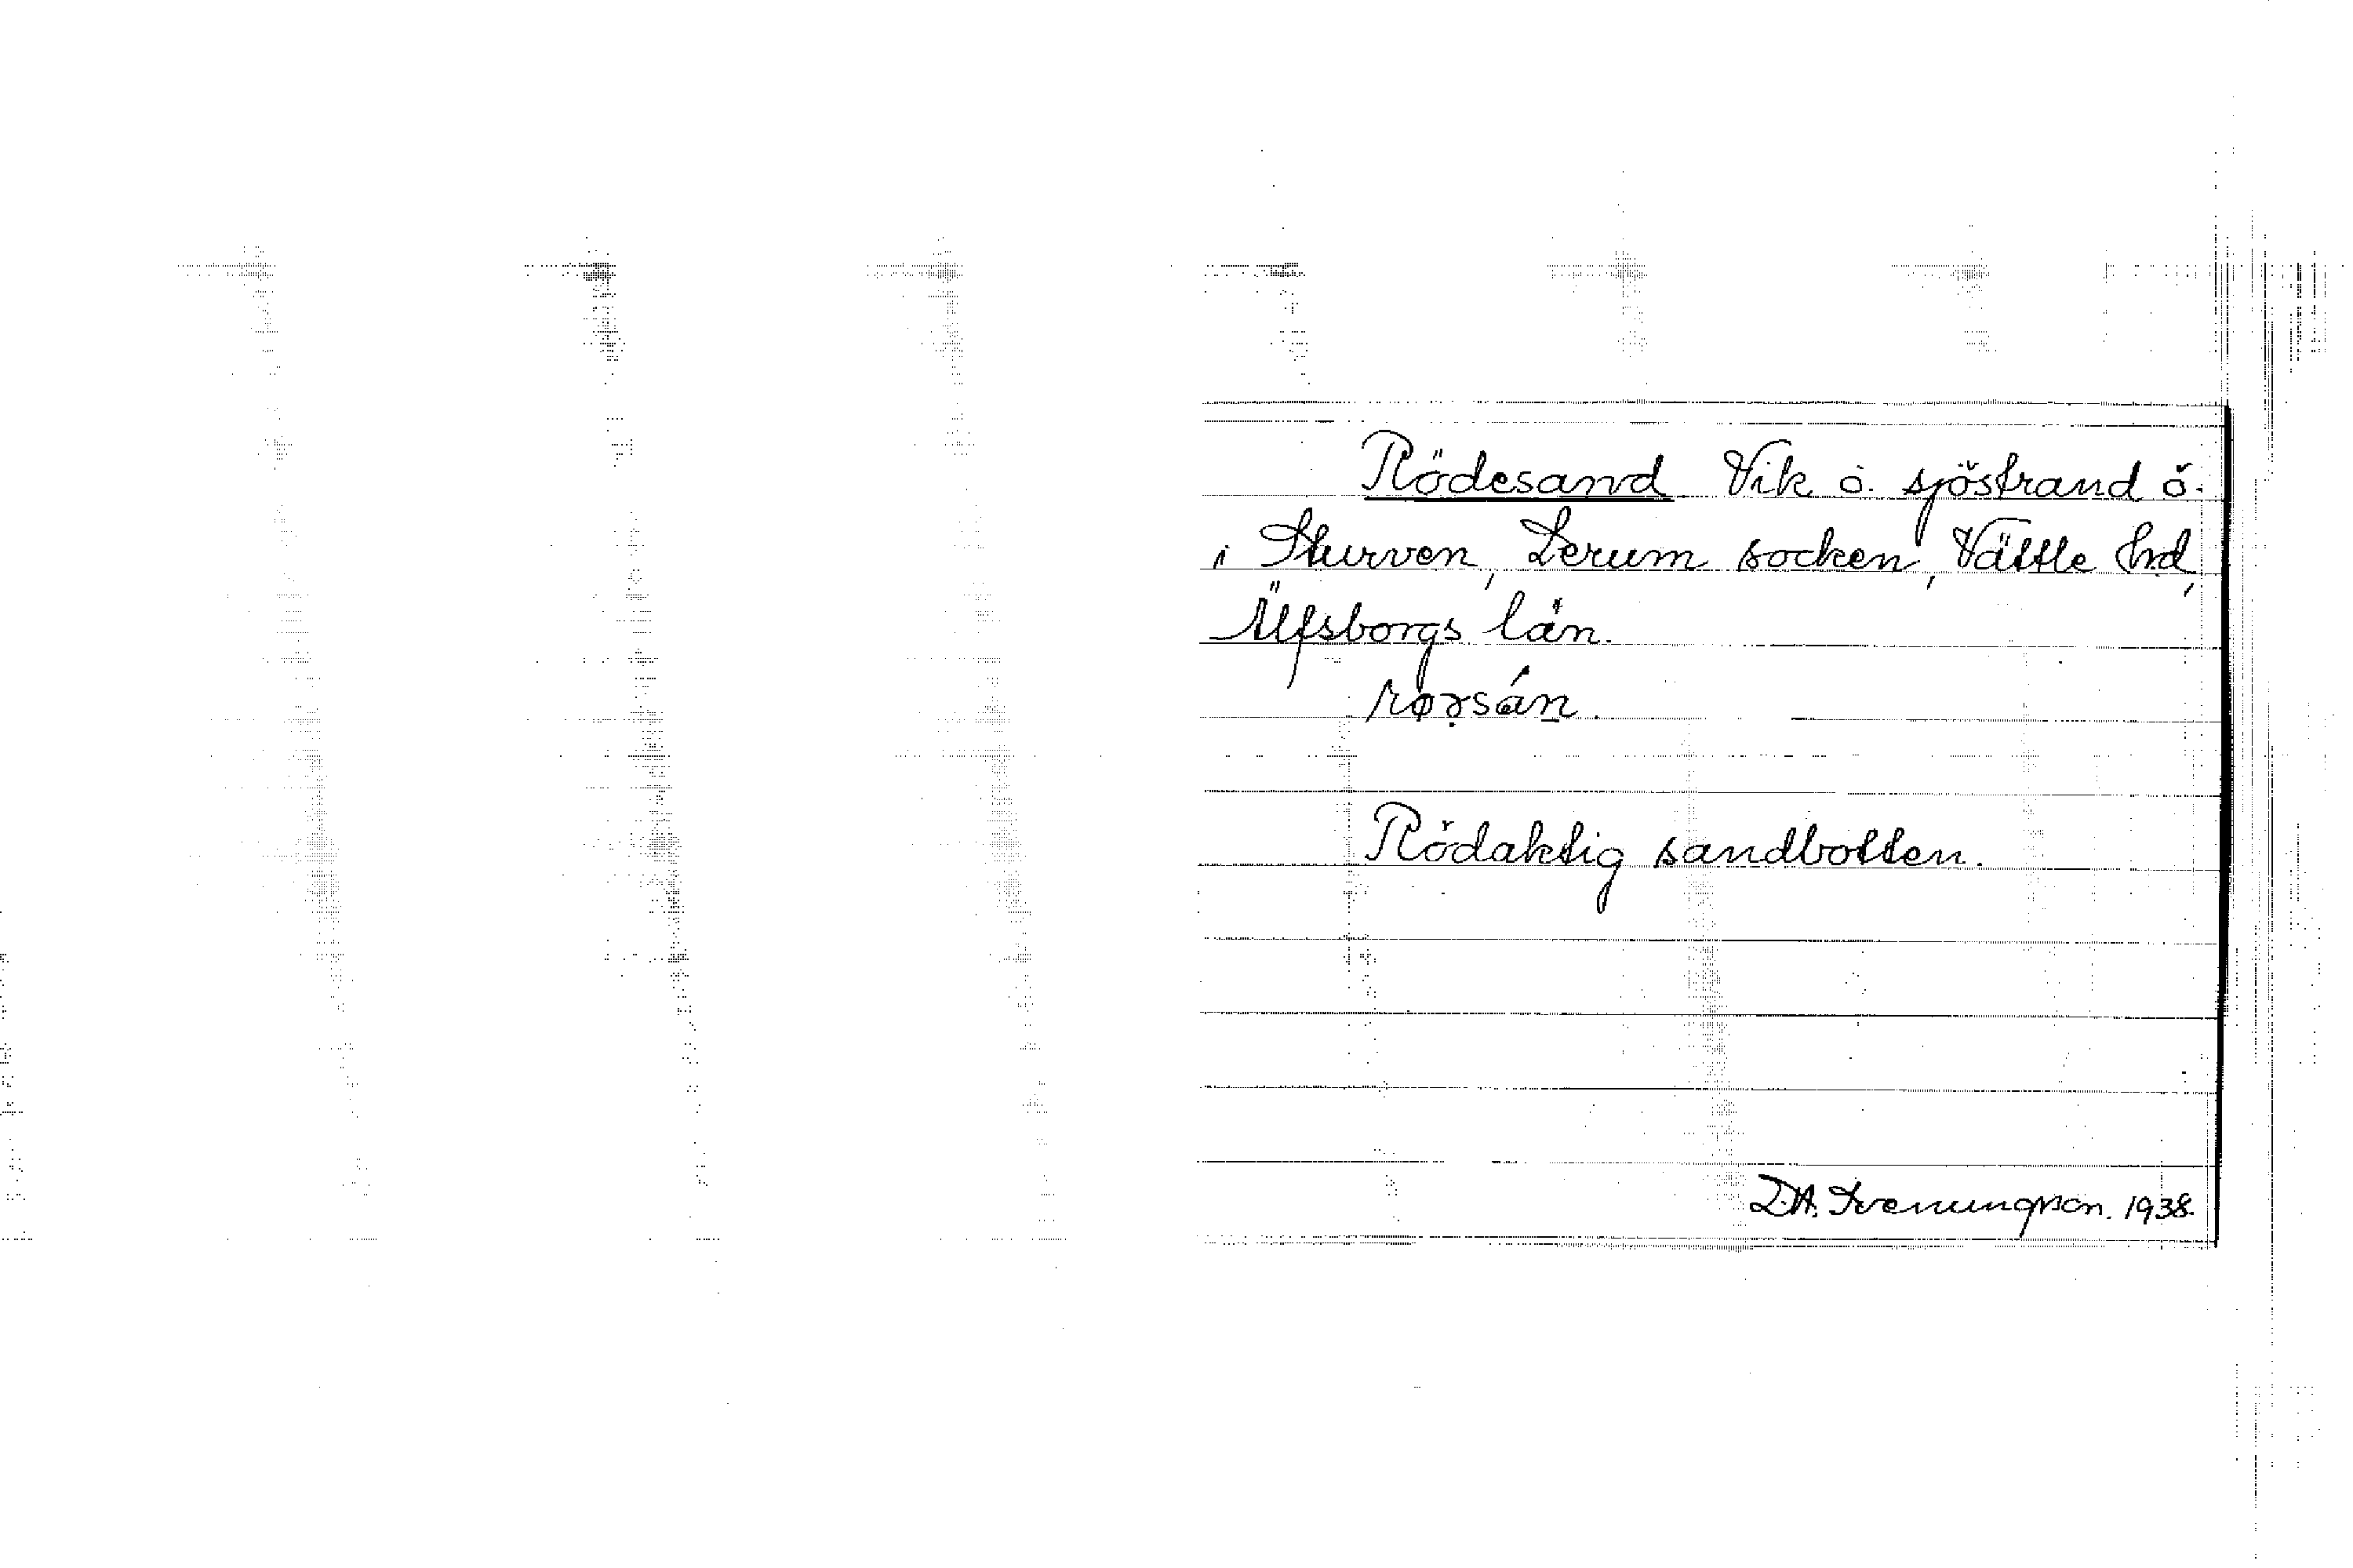 Rödesand Vik ö. sjöstrand ö.
i Sturven, Lerum socken, Vättle hd,
Älfsborgs län.
Rödaktig sandbotten.
D.A. Svenungsson. 1938.